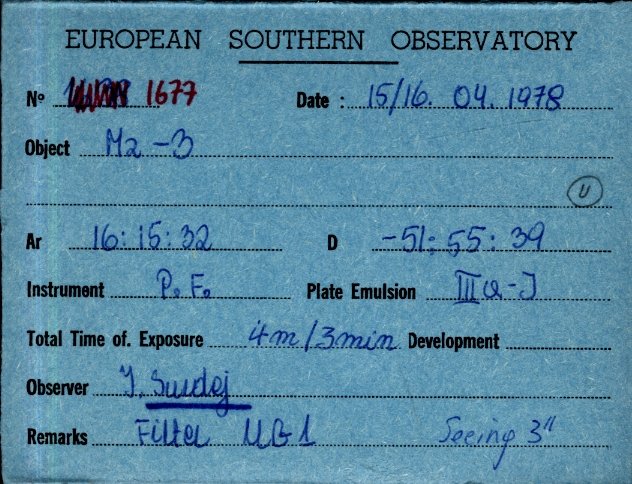 EUROPEAN SOUTHERN OBSERVATORY
Nº 1677 Date : 15/16. 04. 1978
Object Mz-3
U
Ar 16:15:32 D -51:55:39
Instrument P.F. Plate Emulsion IIIa-J
Total Time of. Exposure 4m/3min Development
Observer J. Surdej
Remarks Filter UG1 Seeing 3"